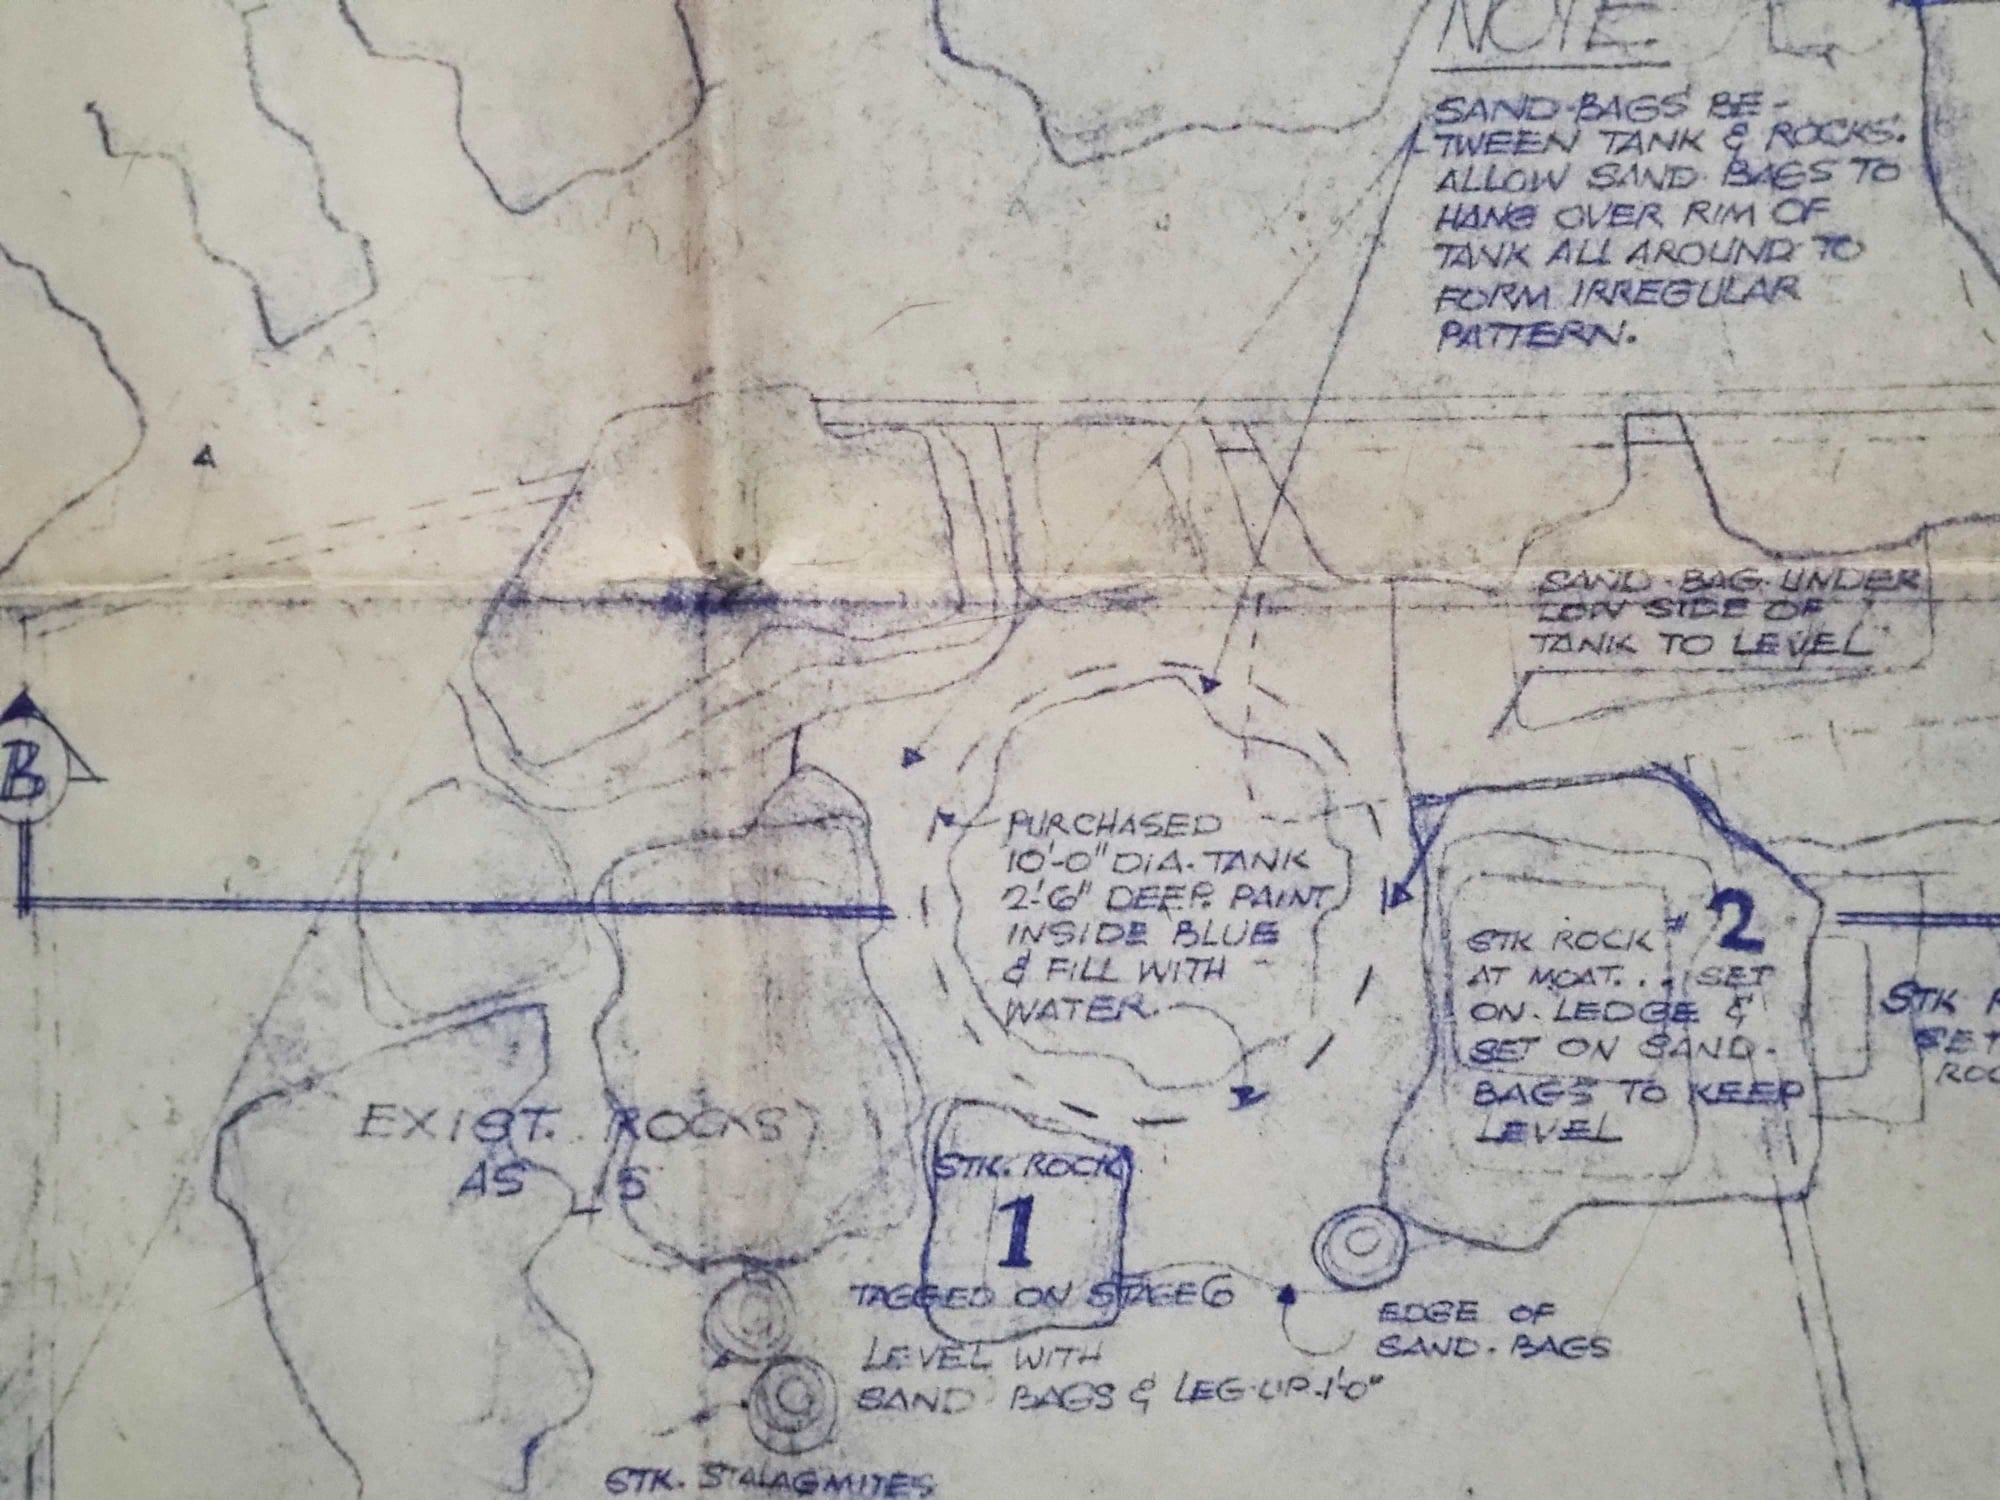 NOTE:
SAND-BAGS BE-
TWEEN TANK & ROCKS.
ALLOW SAND-BAGS TO
HANG OVER RIM OF
TANK ALL AROUND TO
FORM IRREGULAR
PATTERN.
SAND-BAG UNDER
LOW SIDE OF
TANK TO LEVEL
B
PURCHASED
10'-0" DIA. TANK
2'-6" DEEP. PAINT
INSIDE BLUE
& FILL WITH
WATER.
STK ROCK # 2
AT MOAT... SET
ON LEDGE &
SET ON SAND-
BAGS TO KEEP
LEVEL
STK
SET
EXIST. ROCKS
AS
STK. ROCK
1
TAGGED ON STAGE 6
LEVEL WITH
SAND BAGS & LEG-UP-1'0"
EDGE OF
SAND-BAGS
STK. STALAGMITES